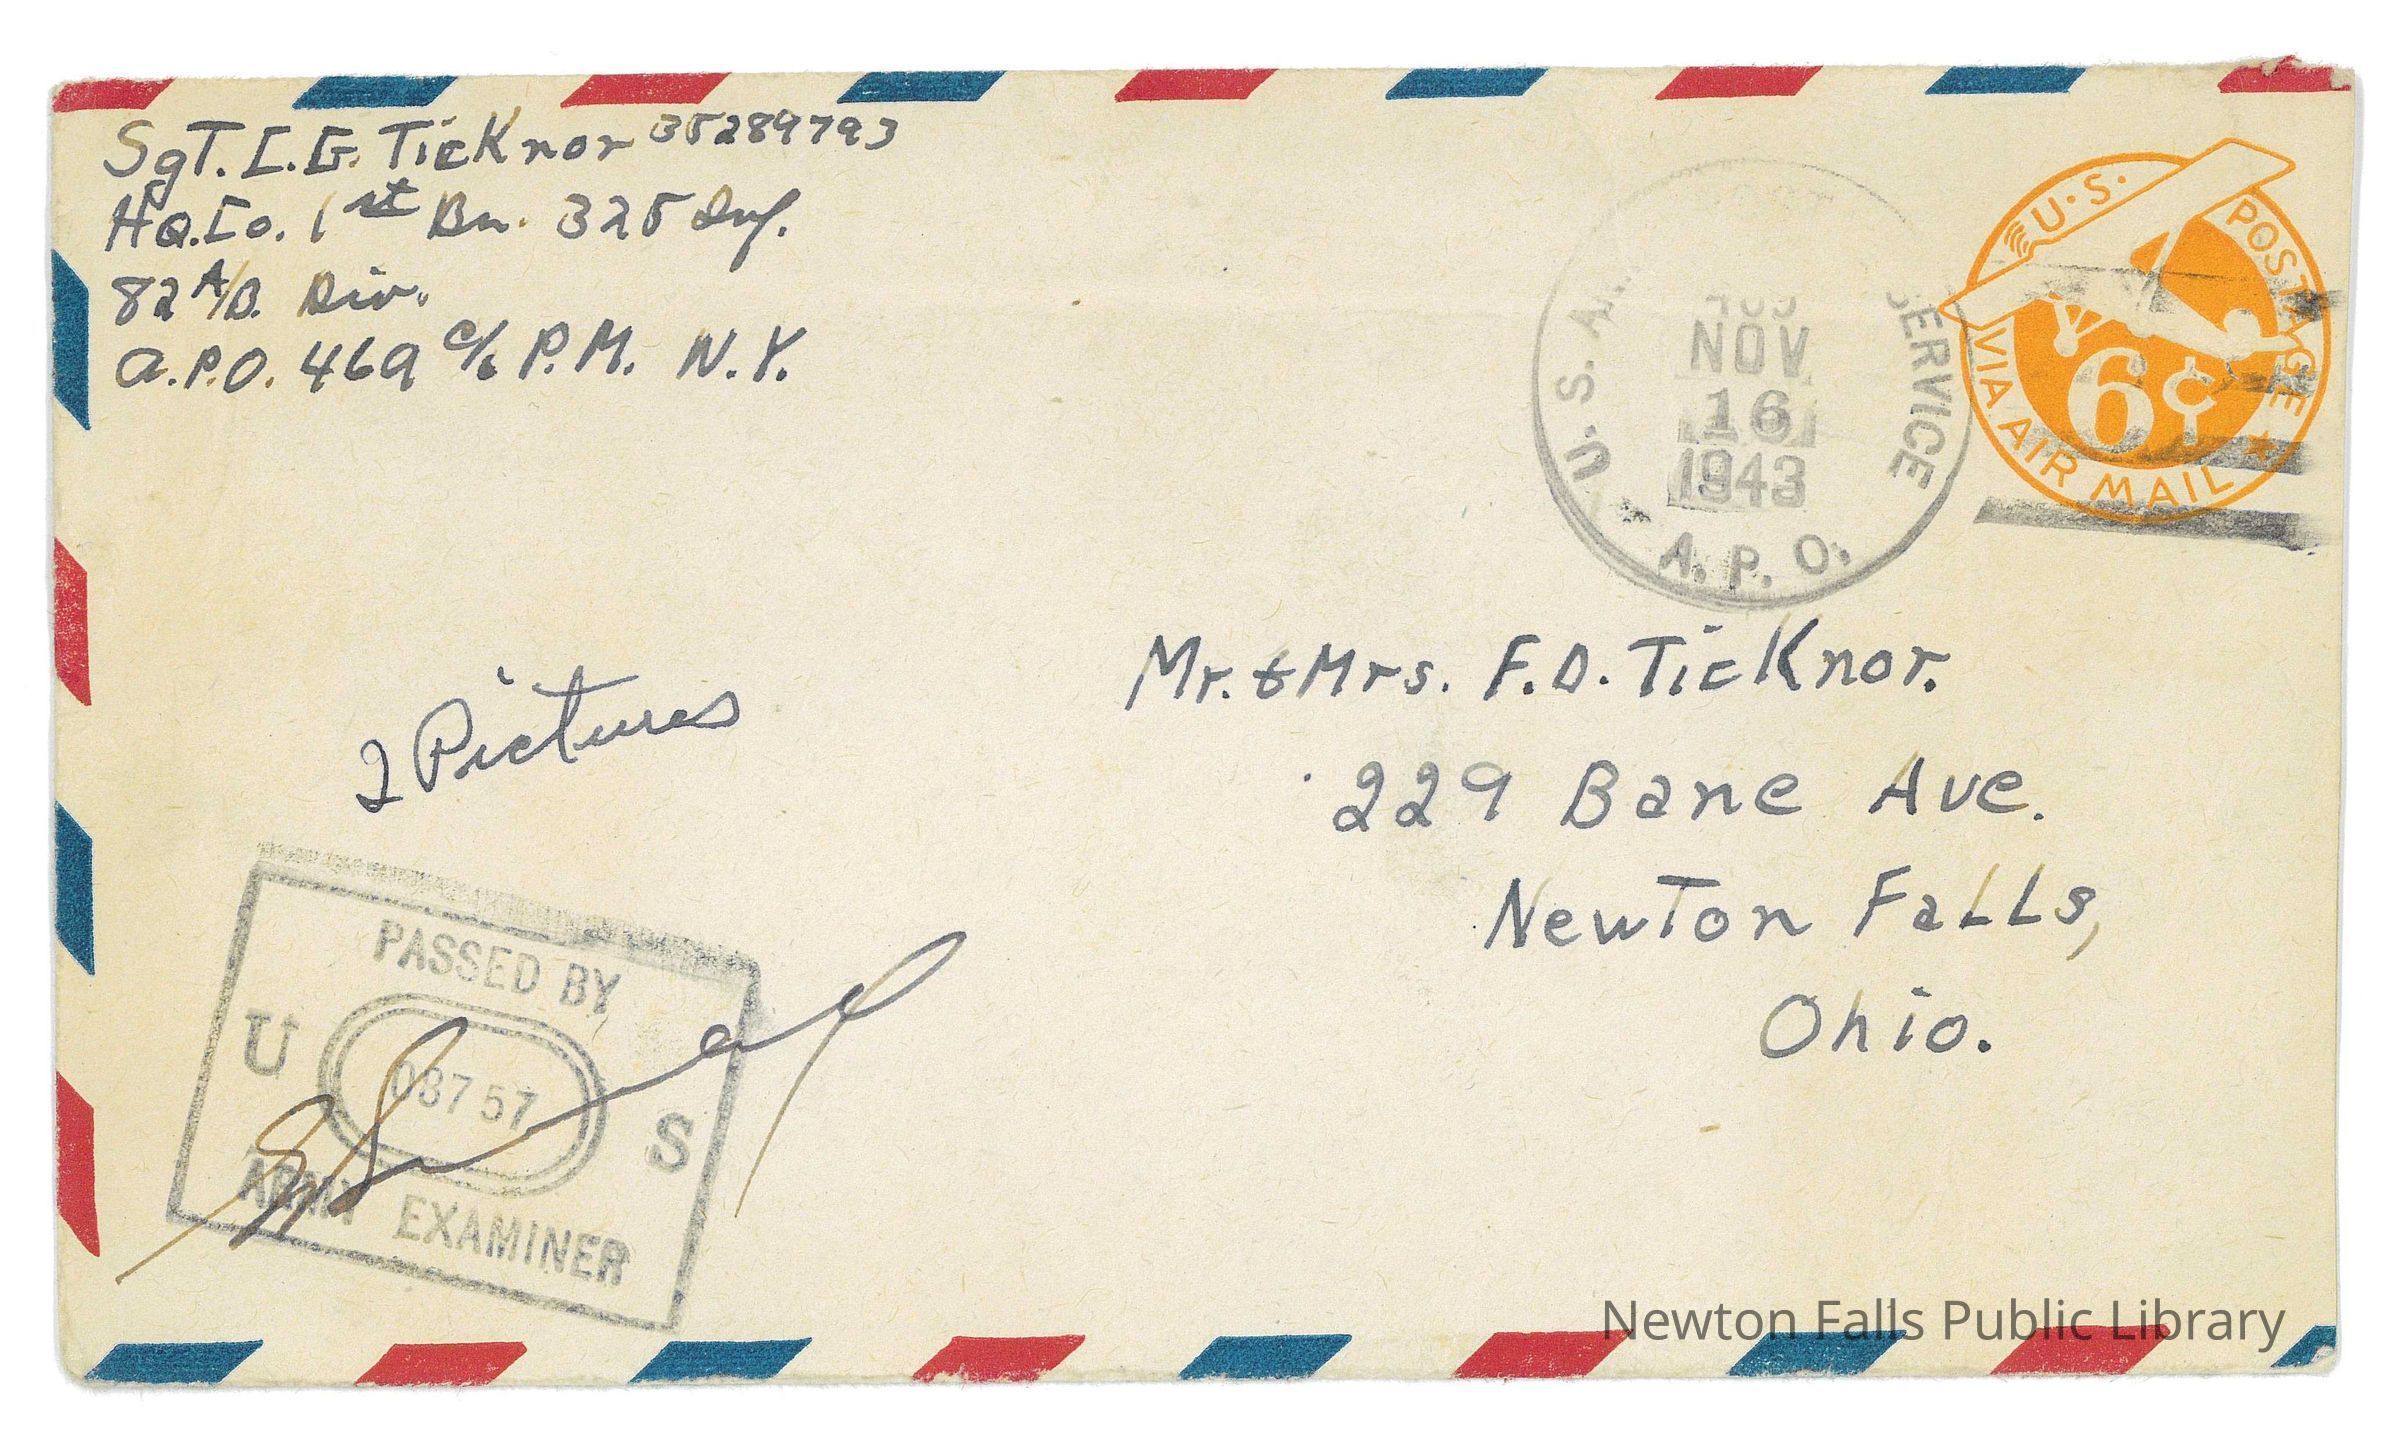 Sgt. C. G. Ticknor 35289793
Hq. Co. 1st Bn. 325 Inf.
82 A/B. Div.
A.P.O. 469 c/o P.M. N.Y.
U.S. POSTAGE
VIA AIR MAIL
6¢
U.S. A. SERVICE
NOV
16
1943
A.P.O.
Mr. & Mrs. F. D. Ticknor.
229 Bane Ave.
Newton Falls,
Ohio.
2 Pictures
PASSED BY
U 08757 S
ARMY EXAMINER
Newton Falls Public Library